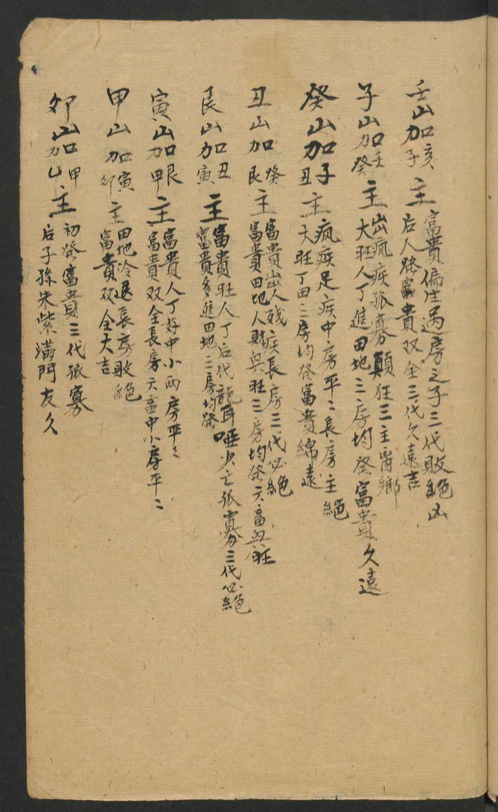 壬山加亥子主富貴偏生過房之子三代敗絕凶
后人發富貴双全三代久遠吉
子山加壬癸主出瘋疾孤寡顛狂三主离鄉
大旺人丁進田地三房均發富貴久遠
癸山加子丑主瘋疾足疾中房平〻長房主絕
大旺丁田三房均發富貴綿遠
丑山加癸艮主富貴出人殘疾長房三代必絕
富貴田地人財興旺三房均發六畜興旺
艮山加丑寅主富貴旺人丁后代聾耳啞少亡孤寡三代必絕
富貴多進田地三房均發
寅山加艮甲主富貴人丁好中小兩房平〻
富貴双全長房六畜中小房平〻
甲山加寅卯主田地冷退長房敗絕
富貴双全大吉
卯山加甲乙主初發富貴三代孤寡
后子孫朱紫滿門友久